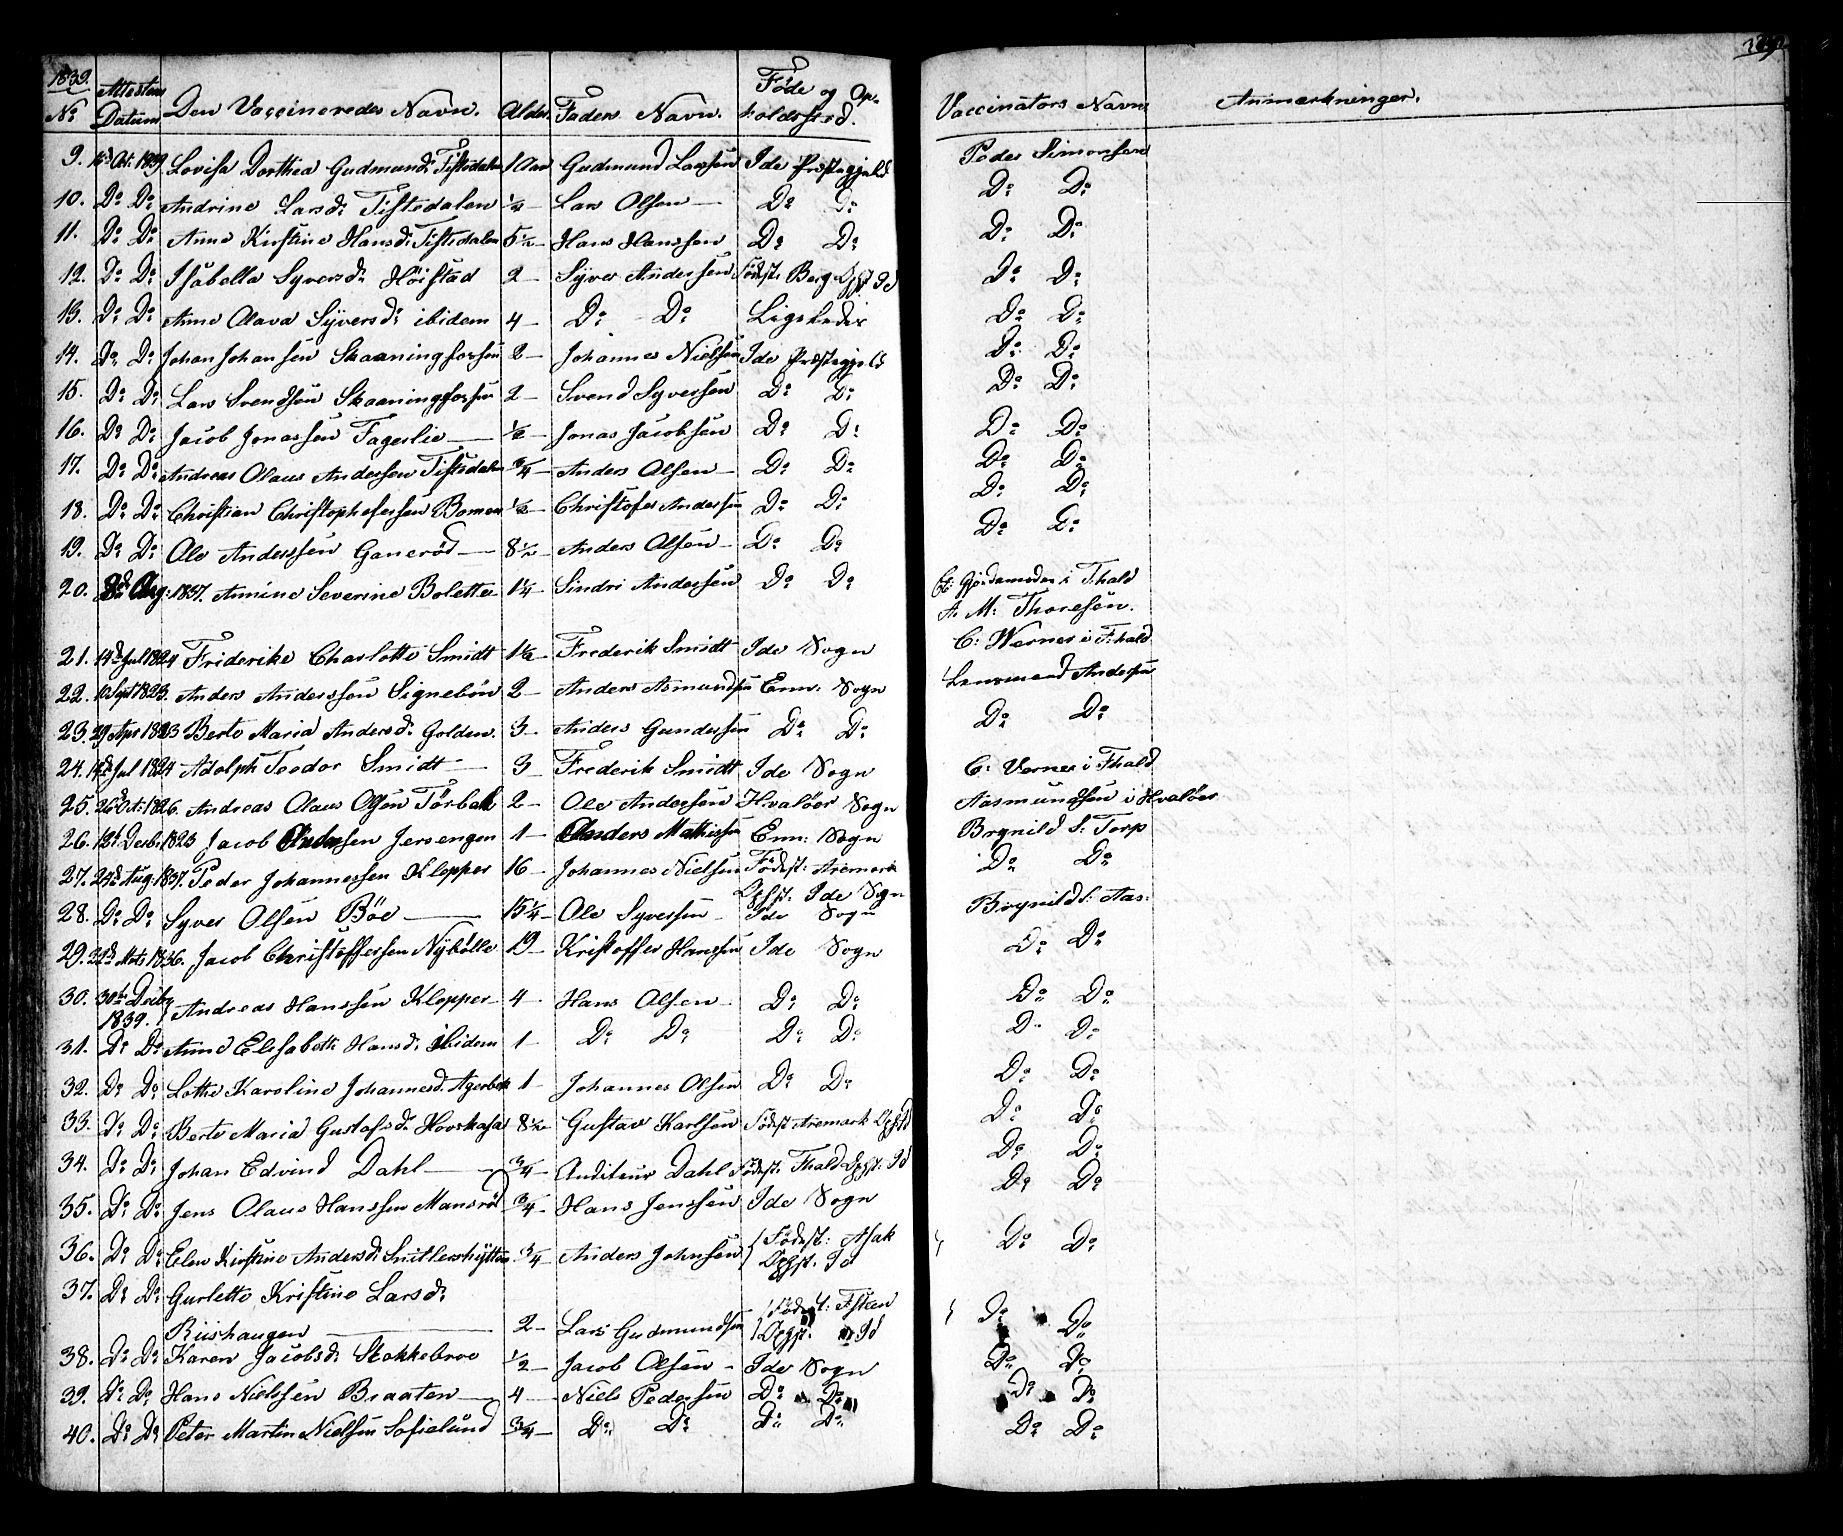 1839.
No Attestens Datum Den Vaccineredes Navn. Alder Faders Navn. Føde og Opholdssted. Vaccinators Navn Anmærkninger.
9. 16d Oct. 1839 Lovisa Dorthea Gudmundsd: Tistedalen 1 Aar Gudmund Larssen Ide Præstegjeld Peder Simonsen
10. Do Do Andrine Larsd: Tistedalen ½ — Lars Olsen — Do Do Do Do
11. Do Do Anne Kirstine Hansd: Tistedalen 5½ — Hans Hanssen Do Do Do Do
12. Do Do Isabella Syversd: Höistad 2 — Syver Anderssen Födest: Berg Ophst Id Do Do
13. Do Do Anne Olava Syversd: ibidem 4 — Do Do Ligeledes Do Do
14. Do Do Johan Johansen Skaaningfossen 2 — Johannes Nielssen Ide Præstegjeld Do Do
15. Do Do Lars Svendsen Skaaningfossen 2 — Svend Syversen Do Do Do Do
16. Do Do Jacob Jonassen Fagerlie — ½ — Jonas Jacobsen Do Do Do Do
17. Do Do Andreas Olaus Anderssen Tistedalen ¾ — Anders Olsen — Do Do Do Do
18. Do Do Christian Christophersen Bomen ½ — Christofer Anderssen Do Do Do Do
19. Do Do Ole Anderssen Ganerød — 8½ — Anders Olsen — Do Do Do Do
20. Aug: 1837. Annine Severine Bolette 1¼ — Sindri Anderssen Do Do Gjordemoder i Fhald
A. M. Thoresen.
21. 14d Jul 1824 Friderike Charlotte Smidt 1½ — Frederik Smidt Ide Sogn C: Werner i Fhald
22. 10 Sept 1823. Anders Anderssen Signebøn 2 — Anders Asmundsen Enn: Sogn Lensmand Andersen
23. 29 Apr 1823 Berte Maria Andersd: Golden. 3 — Anders Gundersen Do Do Do Do
24. 14d Jul 1824 Adolph Teodor Smidt — 3 — Frederik Smidt Ide Sogn C: Verner i Fhald
25. 26 Oct: 1826. Andreas Olaus Olsen Törbek 2 — Ole Anderssen Hvaløer Sogn Aasmundsen i Hvaløer
26. 12t Decb: 1823 Jacob Andersen Jersengen 1 — Anders Mathissen Enn: Sogn Brynild S: Torp
27. 24d Aug: 1837. Peder Johannessen Klepper 16 — Johannes Nielsen Födest: Aremark Do Do
Ophst: Ide Sogn
28. Do Do Syver Olsen Böe — 15¼ — Ole Syverssen — Ide Sogn Brynild S: Aas:
29. 22d Mrts 1836. Jacob Christoffersen Nybølle 19 — Kristoffer Hanssen Ide Sogn Do Do
30. 30te Decbr 1839. Andreas Hanssen Klepper — 4 — Hans Olsen — Do Do Do Do
31. Do Do Anne Elisabeth Hansd: ibidem 1 — Do Do Do Do Do Do
32. Do Do Lothe Karoline Johannesd. Agerbek 1 — Johannes Olsen Do Do Do Do
33. Do Do Berte Maria Gustafsd: Hovskafa 8½ — Gustav Karlsen Födest Aremark Ophst Id Do Do
34. Do Do Johan Edvind Dahl — ¾ — Auditeur Dahl Födest: Fhald Ophst: Id Do Do
35. Do Do Jens Olaus Hanssen Mansrød ¾ — Hans Jenssen Ide Sogn Do Do
36. Do Do Elen Kirstine Andersd: Snitlershytten ¾ — Anders Johnsen Födest: Asak Ophst. Id Do Do
37. Do Do Gurlette Kristine Larsd:
Riishaugen — 2 — Lars Gudmundsen Födest: Ophst. Id Do Do
38. Do Do Karen Jacobsd: Stokkebroe ½ — Jacob Olsen — Ide Sogn Do Do
39. Do Do Hans Nielssen Braaten — 4 — Niels Pedersen Do Do Do Do
40. Do Do Peter Martin Nielsen Sofielund ¾ — Do Do Do Do Do Do